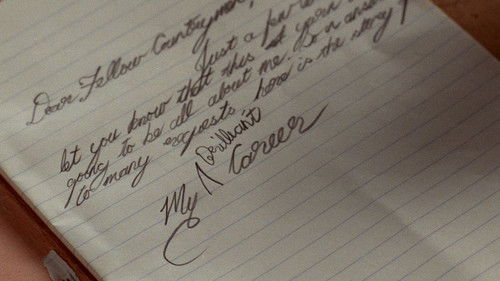 Dear Fellow Countrymen,
Just a few
let you know that this yarn is
going to be all about me. So in answer
to many requests here is the story of
My Brilliant Career